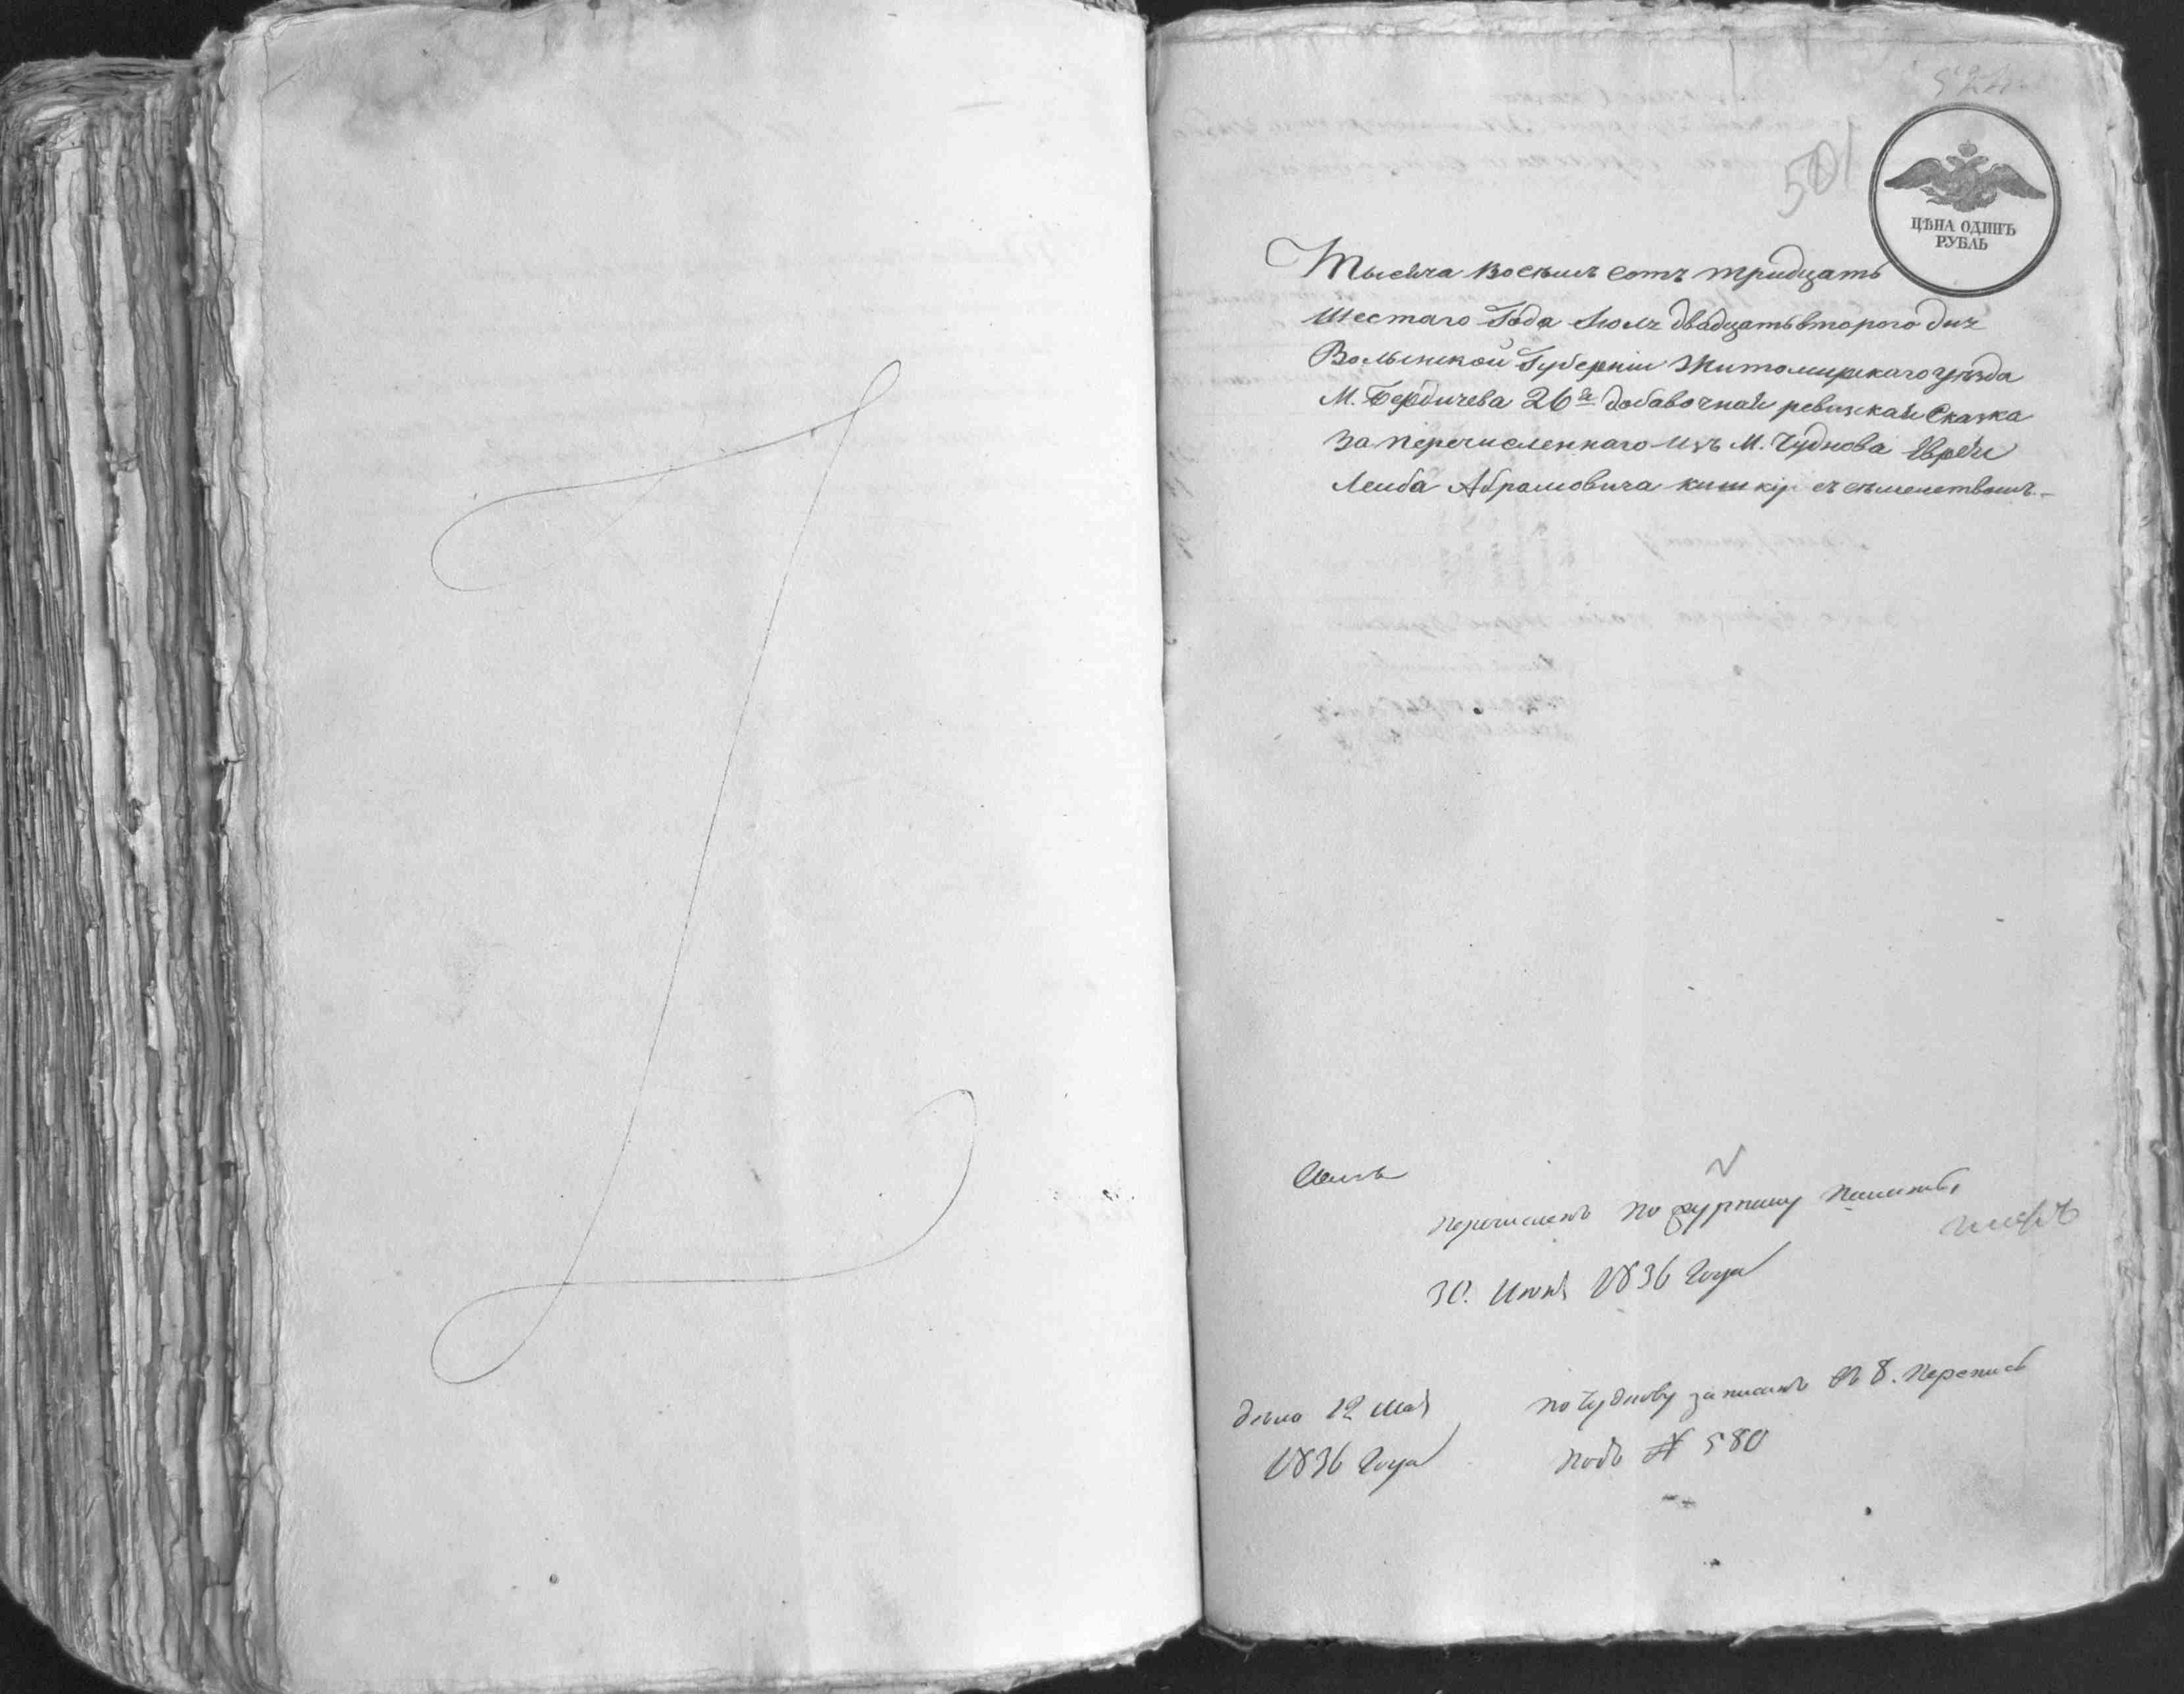 501
ЦѢНА ОДИНЪ
РУБЛЬ
Тысяча восемь сотъ тридцать
шестаго Года Июля двадцать второго дня
Волынской Губернiи Житомирскаго уѣзда
М. Бердичева 26я добавочная ревизская Сказка
За перечисленнаго изъ М. Чуднова Еврея
Лейба Абрамовича с семействомъ.
перечисленъ по
30. Июня 1836 Года
дѣло 12 мая
1836 Года
по Чуднову записанъ въ 8. перепись
подъ № 580